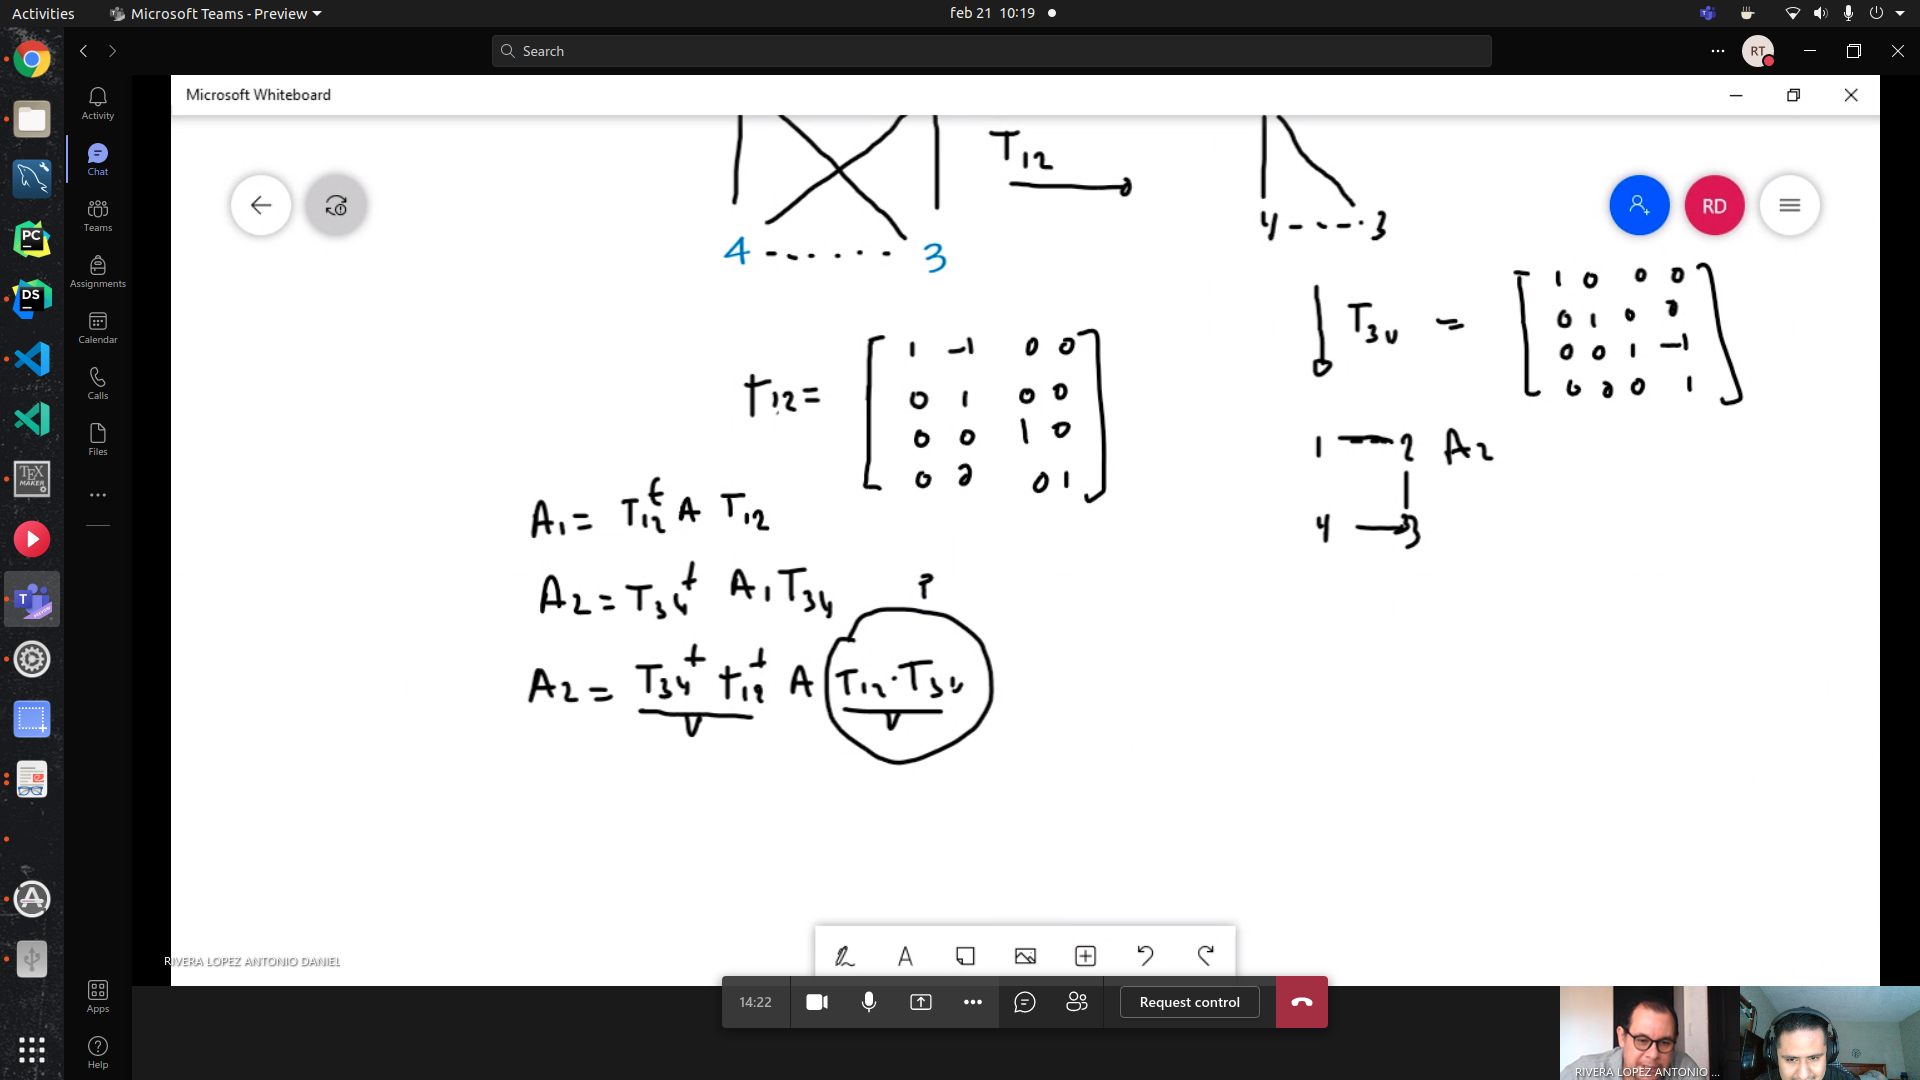 Activities
Microsoft Teams - Preview
feb 21 10:19
Search
RT
Activity
Chat
Teams
Assignments
Calendar
Calls
Files
Apps
Help
Microsoft Whiteboard
RD
T12
4 - - . . . . - 3
4 - - - . 3
T34 =
1 0 0 0
0 1 0 0
0 0 1 -1
0 0 0 1
t12 =
1 -1 0 0
0 1 0 0
0 0 1 0
0 0 0 1
1 — 2 A2
4 — 3
A1 = T12^t A T12
A2 = T34^t A1 T34
P
A2 = T34^t t12^t A T12 · T34
RIVERA LOPEZ ANTONIO DANIEL
14:22
Request control
RIVERA LOPEZ ANTONIO ...
PC
DS
TEX
MAKER
T